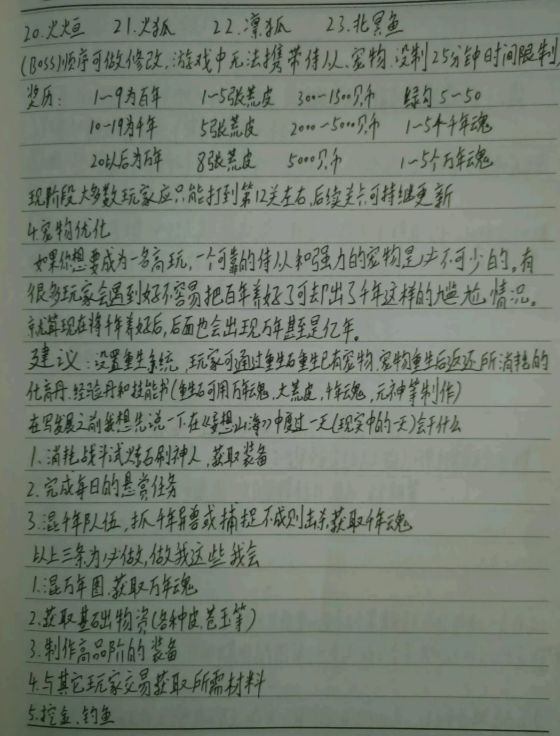 20.火烜 21.火狐 22.凛狐 23.北冥鱼
(Boss)顺序可做修改,游戏中无法携带侍从、宠物,设制25分钟时间限制
奖历: 1—9为百年 1—5张荒皮 300—1500贝币 绿勾5—50
10—19为千年 5张荒皮 2000—5000贝币 1—5个千年魂
20以后为万年 8张荒皮 5000贝币 1—5个万年魂
现阶段大多数玩家应只能打到第12关左右,后续关卡可持继更新
4.宠物优化
如果你想要成为一名高玩,一个可靠的侍从和强力的宠物是必不可少的。有
很多玩家会遇到好不容易把百年养好了可却出了千年这样的尴尬情况。
就算现在将千年养好后,后面也会出现万年甚至是亿年。
建议:设置重生系统,玩家可通过重生石重生已有宠物,宠物重生后返还所消耗的
化育丹、经验丹和技能书(重生石可用万年魂,大荒皮,千年魂,元神等制作)
在写发展之前我想先说一下在《妄想山海》中度过一天(现实中的一天)会干什么
1.消耗战斗试炼石刷神人,获取装备
2.完成每日的悬赏任务
3.混千年队伍,抓千年异兽或捕捉不成则击杀获取千年魂
以上三条为必做,做我这些我会
1.混万年团,获取万年魂
2.获取基础物资(各种皮,苍玉等)
3.制作高品阶的装备
4.与其它玩家交易获取所需材料
5.挖金、钓鱼